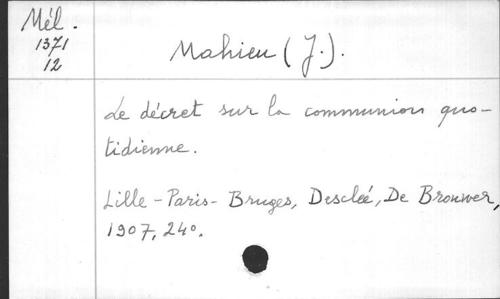 Mél.
1371
12
Mahieu (J.).
Le décret sur la communion quo-
tidienne.
Lille - Paris - Bruges, Desclée, De Brouwer,
1907, 24o.